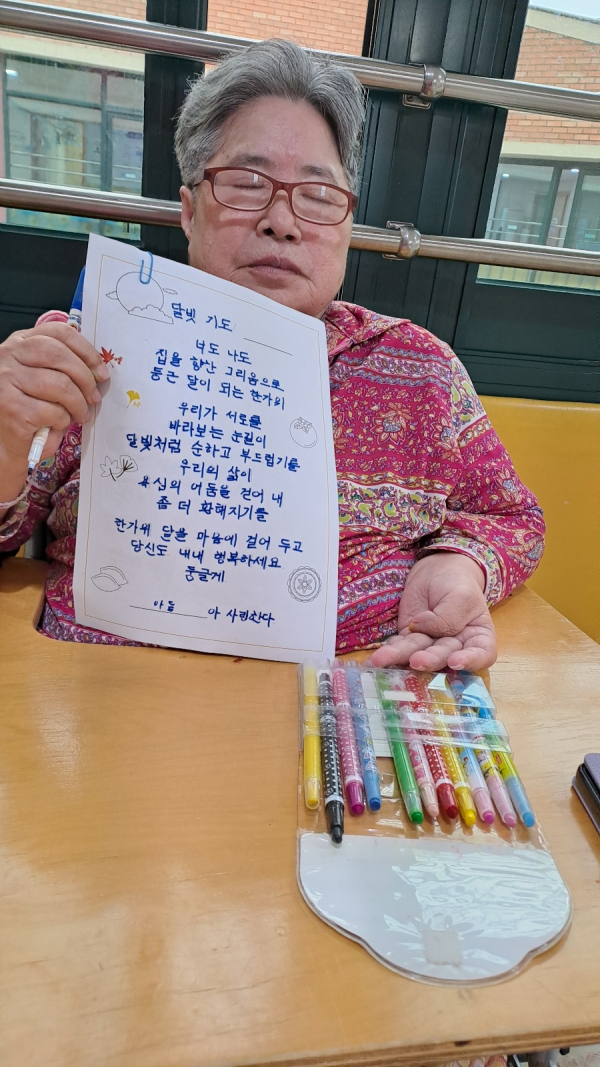 달빛 기도
너도 나도
집을 향한 그리움으로
둥근 달이 되는 한가위
우리가 서로를
바라보는 눈길이
달빛처럼 순하고 부드럽기를
우리의 삶이
욕심의 어둠을 걷어 내
좀 더 환해지기를
한가위 달을 마음에 걸어 두고
당신도 내내 행복하세요
둥글게
아들 아 사랑한다